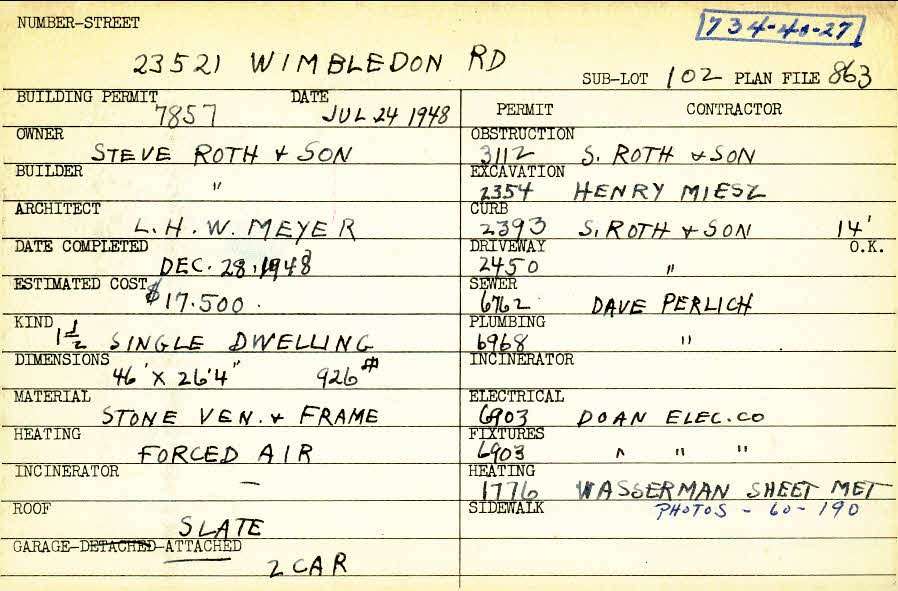 NUMBER-STREET
734-40-27
23521 WIMBLEDON RD
SUB-LOT 102 PLAN FILE 863
BUILDING PERMIT DATE
7857 JUL 24 1948
OWNER
STEVE ROTH & SON
BUILDER
"
ARCHITECT
L. H. W. MEYER
DATE COMPLETED
DEC. 28. 1948
ESTIMATED COST
$17.500.
KIND
1 1/2 SINGLE DWELLING
DIMENSIONS
46' X 26'4" 926 #
MATERIAL
STONE VEN. & FRAME
HEATING
FORCED AIR
INCINERATOR
—
ROOF
SLATE
GARAGE-DETACHED-ATTACHED
2 CAR
PERMIT CONTRACTOR
OBSTRUCTION
3112 S. ROTH & SON
EXCAVATION
2354 HENRY MIESZ
CURB
2393 S. ROTH & SON 14'
DRIVEWAY O.K.
2450 "
SEWER
6762 DAVE PERLICH
PLUMBING
6968 "
INCINERATOR
ELECTRICAL
6903 DOAN ELEC. CO
FIXTURES
6903 " " "
HEATING
1776 WASSERMAN SHEET MET
SIDEWALK PHOTOS - 60-190